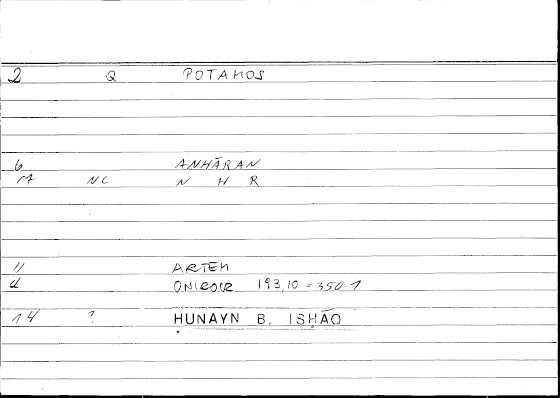 2 Q POTAMOS
6 ANHĀRAN
NC N H R
11 ARTEM
d ONIROCR 193,10 = 350.1
14 ? ḤUNAYN B. ISḤĀQ